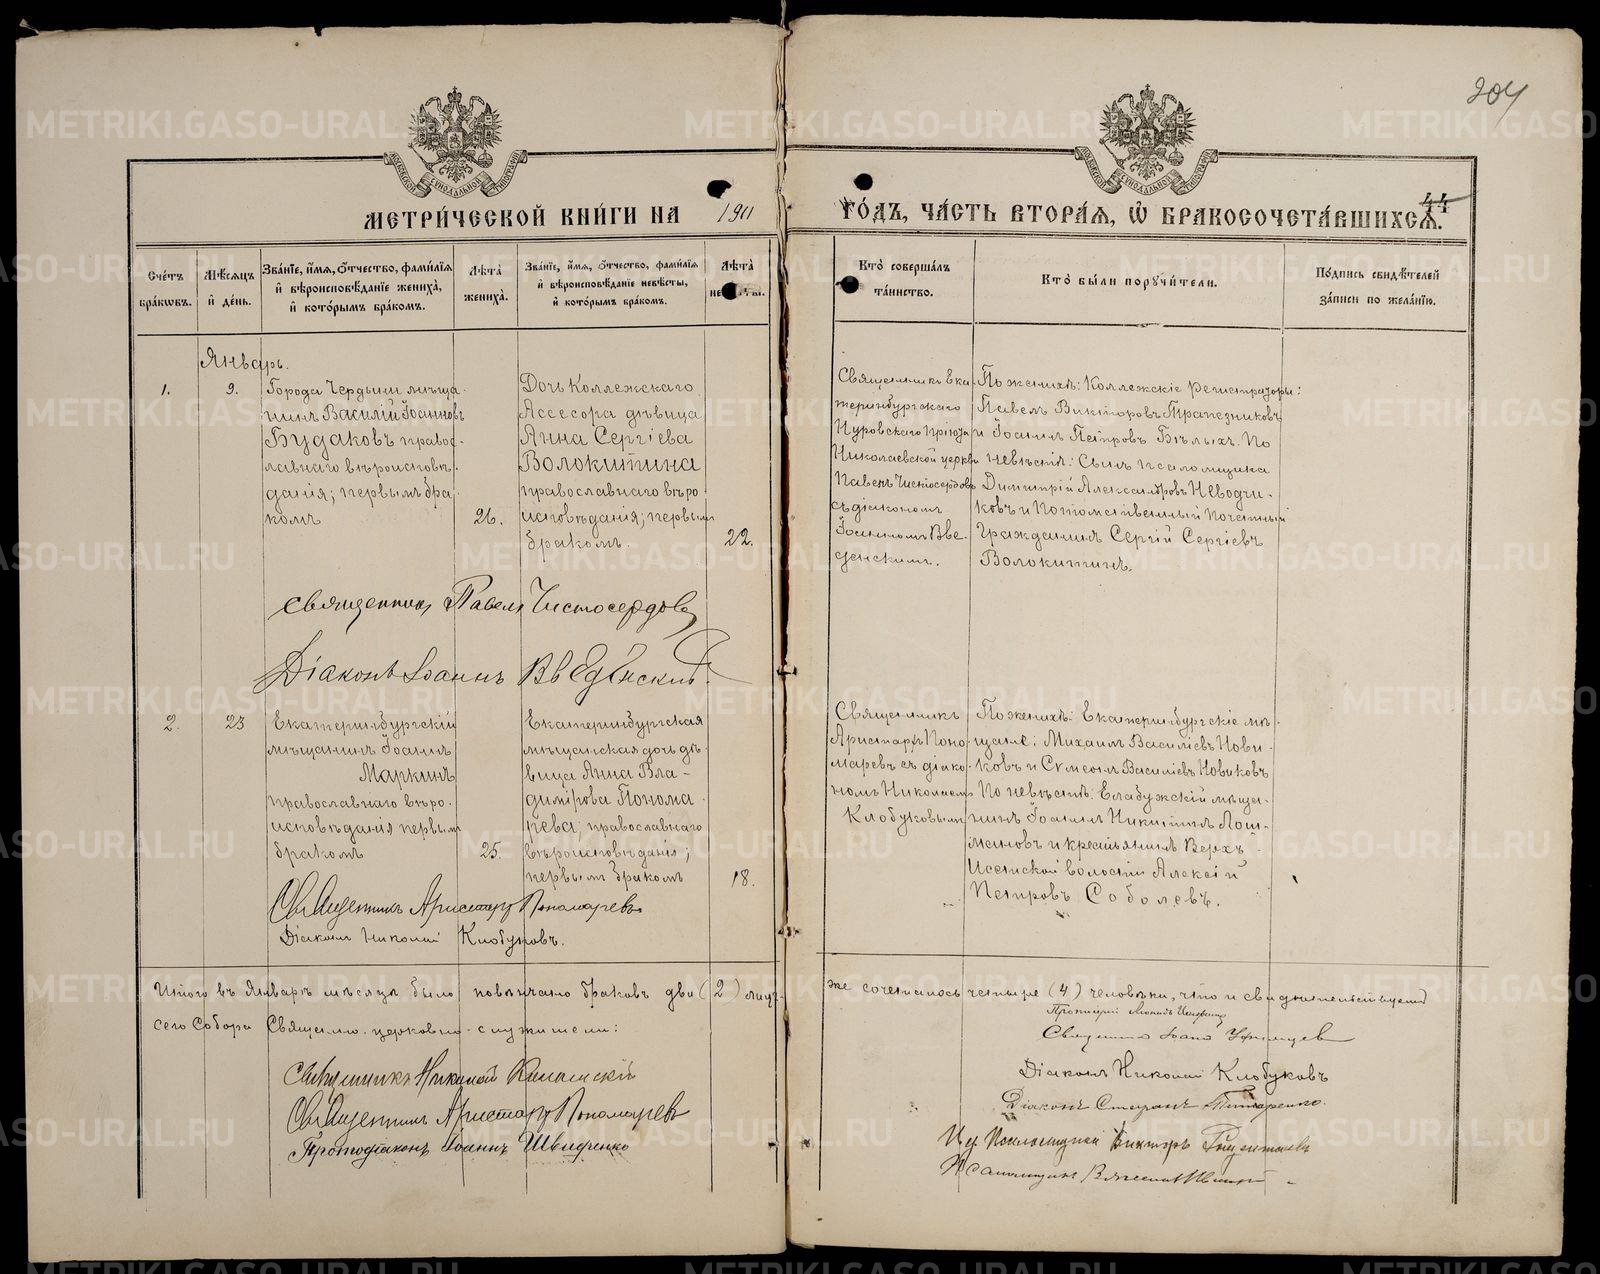 204
МЕТРИ́ЧЕСКОЙ КНИ́ГИ НА 1911 ГО́ДЪ, ЧА́СТЬ ВТОРА́Ѧ, Ѽ БРАКОСОЧЕТА́ВШИХСѦ.
44
Сче́тъ бра́ковъ.
Мѣ́сѧцъ и҆ де́нь.
Зва́нїе, и҆́мѧ, ѻ҆́тчество, фами́лїѧ
и҆ вѣроисповѣ́данїе жениха̀,
и҆ кото́рымъ бра́комъ.
Лѣ́та жениха̀.
Зва́нїе, и҆́мѧ, ѻ҆́тчество, фами́лїѧ
и҆ вѣроисповѣ́данїе невѣ́сты,
и҆ кото́рымъ бра́комъ.
Лѣ́та
Кто̀ соверша́лъ
та́инство.
Кто̀ бы́ли порꙋчи́тели.
По́дпись свидѣ́телей
за́писи по жела́нїю.
Январь.
1.
9.
Города Чердыни мѣща-
нинъ Василій Іоанновъ
Будаковъ правос-
лавнаго вѣроисповѣ-
данія; первымъ бра-
комъ
26.
Дочь Коллежскаго
Ассесора дѣвица
Анна Сергіева
Волокитина
православнаго вѣро-
исповѣданія; первымъ
бракомъ.
22.
Священникъ Ека-
теринбургскаго
Нуровскаго пріюта
Николаевской церкви
Павелъ Чистосердовъ
съ діакономъ
Іоанномъ Вве-
денскимъ.
По женихѣ: Коллежскіе Регистраторы:
Павелъ Викторовъ Трапезниковъ
и Іоаннъ Петровъ Бѣлыхъ. По
невѣстѣ: Сынъ псаломщика
Димитрій Александровъ Неводчи-
ковъ и Потомственный Почетный
Гражданинъ Сергій Сергіевъ
Волокитинъ.
Священникъ Павелъ Чистосердовъ
Діаконъ Іоаннъ Введенскій.
2.
23
Екатеринбургскій
мѣщанинъ Іоаннъ
Маркинъ
православнаго вѣро-
исповѣданія первымъ
бракомъ
25.
Екатеринбургская
мѣщанская дочь дѣ-
вица Анна Вла-
димірова Понома-
рева; православнаго
вѣроисповѣданія;
первымъ бракомъ
18.
Священникъ
Аристархъ Поно-
маревъ съ діако-
номъ Николаемъ
Клобуковымъ
По женихѣ: Екатеринбургскіе мѣ-
щане: Михаилъ Василіевъ Нови-
ковъ и Сѵмеонъ Василіевъ Новиковъ
По невѣстѣ: Елабужскій мѣща-
нинъ Іоаннъ Никитинъ Лош-
мановъ и крестьянинъ Верхъ-
Исетской волости Алексій
Петровъ Соболевъ.
Священникъ Аристархъ Пономаревъ
Діаконъ Николай Клобуковъ.
Итого въ Январѣ мѣсяцѣ было повѣнчано браковъ два (2) лицъ-
же сочеталось четыре (4) человѣка, что и свидѣтельствуемъ
сего Собора Священно-церковно-служители:
Протоіерей
Священникъ Іоаннъ
Священникъ Николай
Діаконъ Николай Клобуковъ
Священникъ Аристархъ Пономаревъ
Діаконъ Стефанъ
Протодіаконъ Іоаннъ Швидченко
И. д. Псаломщика Викторъ
Псаломщикъ
METRIKI.GASO-URAL.RU